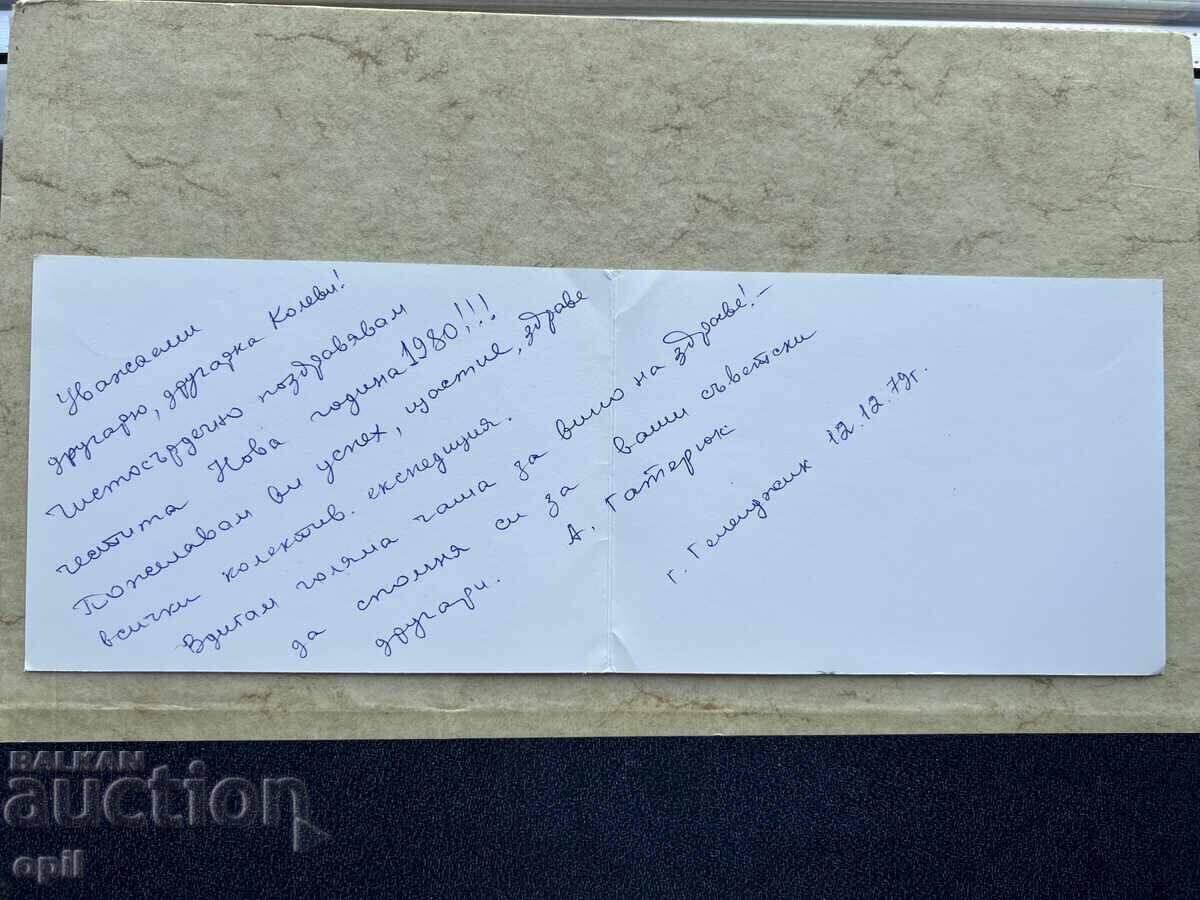 Уважаеми
другарю, другарка Колеви!
Чистосърдечно поздравявам
честита Нова година 1980!!!
Пожелавам ви успех, щастие, здраве
всички колектив. експедиция.
Вдигам голяма чаша за вино на здраве! –
да спомня си за ваши съветски
другари.
А. Гатерюк
г. Геленджик 12.12.79г.
BALKAN
auction
opil